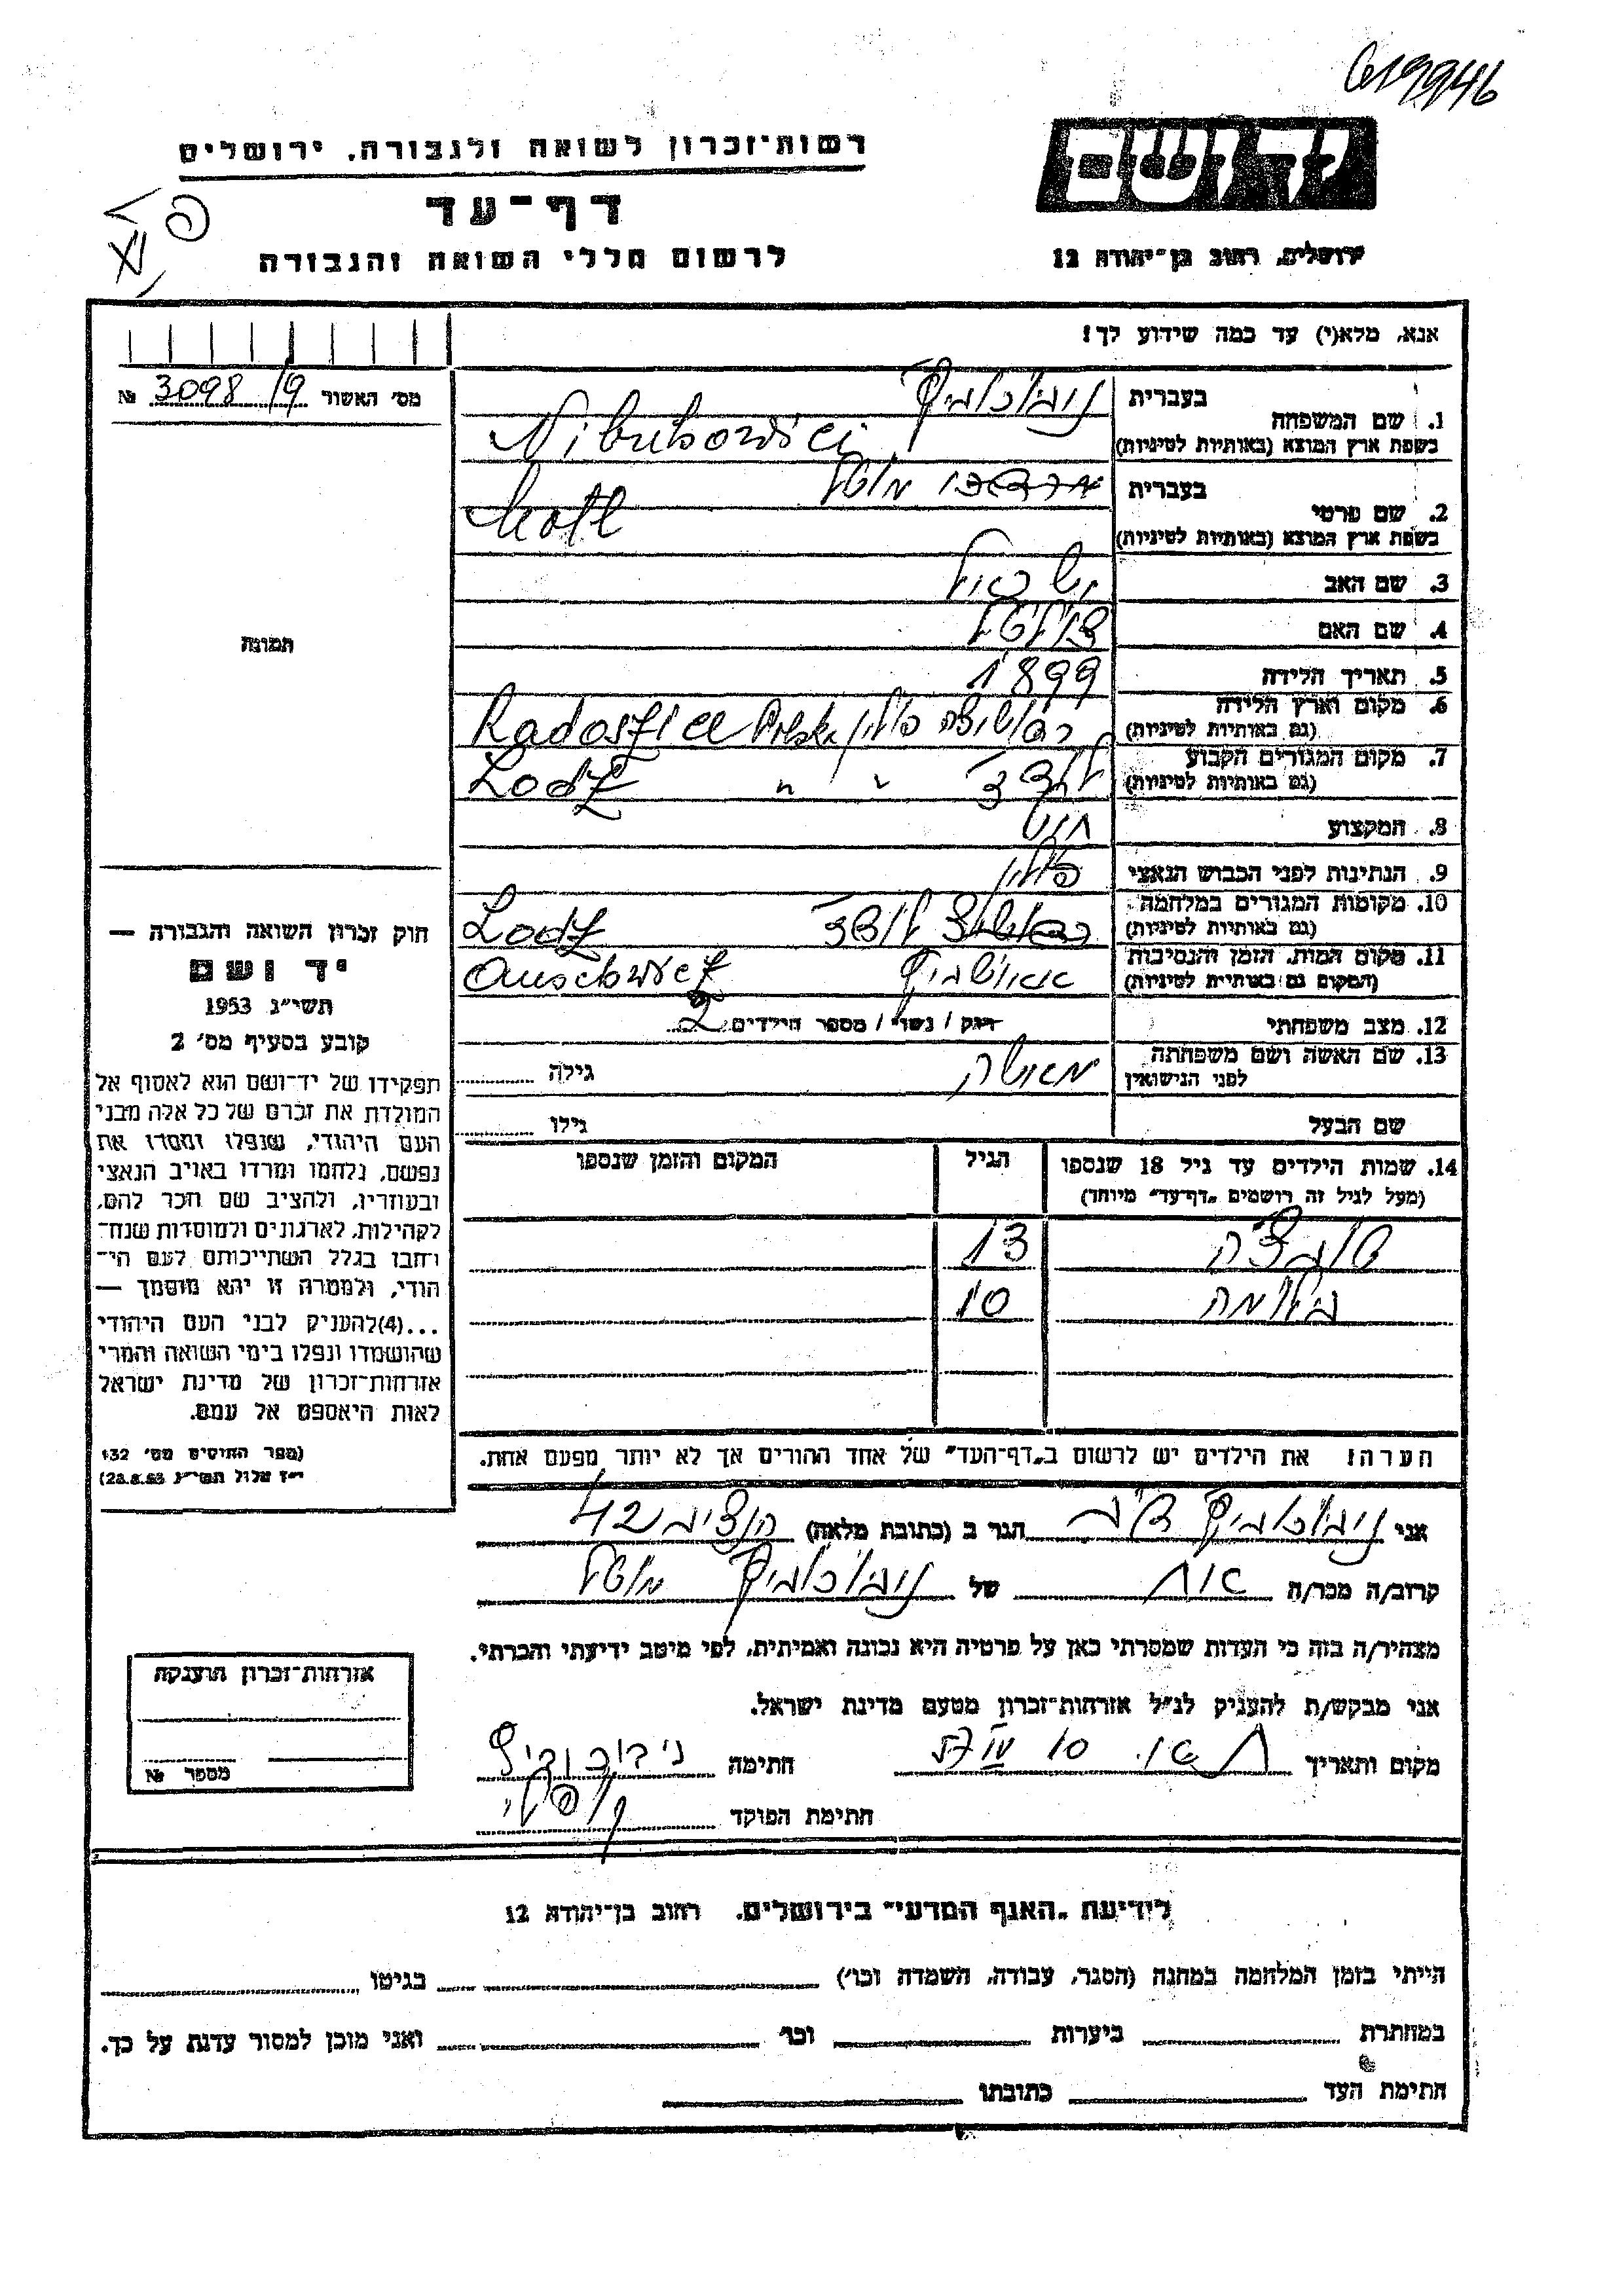 619946
רשות־זכרון לשואה ולגבורה, ירושלים
יד ושם
דף־עד
לרשום חללי השואה והגבורה
ירושלים, רחוב בן־יהודה 12
אנא, מלא(י) עד כמה שידוע לך!
מס' האשור 3098/9 №
1. שם המשפחה
בעברית ניבוכוביץ
בשפת ארץ המוצא (באותיות לטיניות) Nibukowici
2. שם פרטי
בעברית מוטל
בשפת ארץ המוצא (באותיות לטיניות) Motl
3. שם האב ישראל
4. שם האם
5. תאריך הלידה 1899
6. מקום וארץ הלידה
(גם באותיות לטיניות) פולין Polska Radoszice
7. מקום המגורים הקבוע
(גם באותיות לטיניות) לודז' " " Lodz
8. המקצוע
9. הנתינות לפני הכבוש הנאצי פולין
10. מקומות המגורים במלחמה
(גם באותיות לטיניות) לודז' Lodz
11. מקום המות, הזמן והנסיבות
(המקום גם באותיות לטיניות) אאושביץ Auschwicz
12. מצב משפחתי רווק / נשוי / מספר הילדים 2
13. שם האשה ושם משפחתה
לפני הנישואין גילה
שם הבעל גילו
14. שמות הילדים עד גיל 18 שנספו
(מעל לגיל זה רושמים "דף־עד" מיוחד)
הגיל
המקום והזמן שנספו
13
10
הערה! את הילדים יש לרשום ב"דף־העד" של אחד ההורים אך לא יותר מפעם אחת.
תמונה
חוק זכרון השואה והגבורה —
יד ושם
תשי"ג 1953
קובע בסעיף מס' 2
תפקידו של יד־ושם הוא לאסוף אל
המולדת את זכרם של כל אלה מבני
העם היהודי, שנפלו ומסרו את
נפשם, נלחמו ומרדו באויב הנאצי
ובעוזריו, ולהציב שם וזכר להם,
לקהילות, לארגונים ולמוסדות שנח־
רבו בגלל השתייכותם לעם הי־
הודי, ולמטרה זו יהא מוסמך —
...(4) להעניק לבני העם היהודי
שהושמדו ונפלו בימי השואה והמרי
אזרחות־זכרון של מדינת ישראל
לאות היאספם אל עמם.
(ספר החוקים מס' 132
י"ז אלול תשי"ג 28.8.53)
אני ניבוכוביץ הגר ב (כתובת מלאה) הנציב 42
קרוב/ה מכר/ה אח של ניבוכוביץ מוטל
מצהיר/ה בזה כי העדות שמסרתי כאן על פרטיה היא נכונה ואמיתית, לפי מיטב ידיעתי והכרתי.
אני מבקש/ת להעניק לנ"ל אזרחות־זכרון מטעם מדינת ישראל.
מקום ותאריך ת"א. חתימה ניבוכוביץ
חתימת הפוקד
אזרחות־זכרון הוענקה
מספר №
לידיעת "האגף המדעי" בירושלים, רחוב בן־יהודה 12
הייתי בזמן המלחמה במחנה (הסגר, עבודה, השמדה וכו') בגיטו
במחתרת ביערות וכו' ואני מוכן למסור עדות על כך.
חתימת העד כתובתו